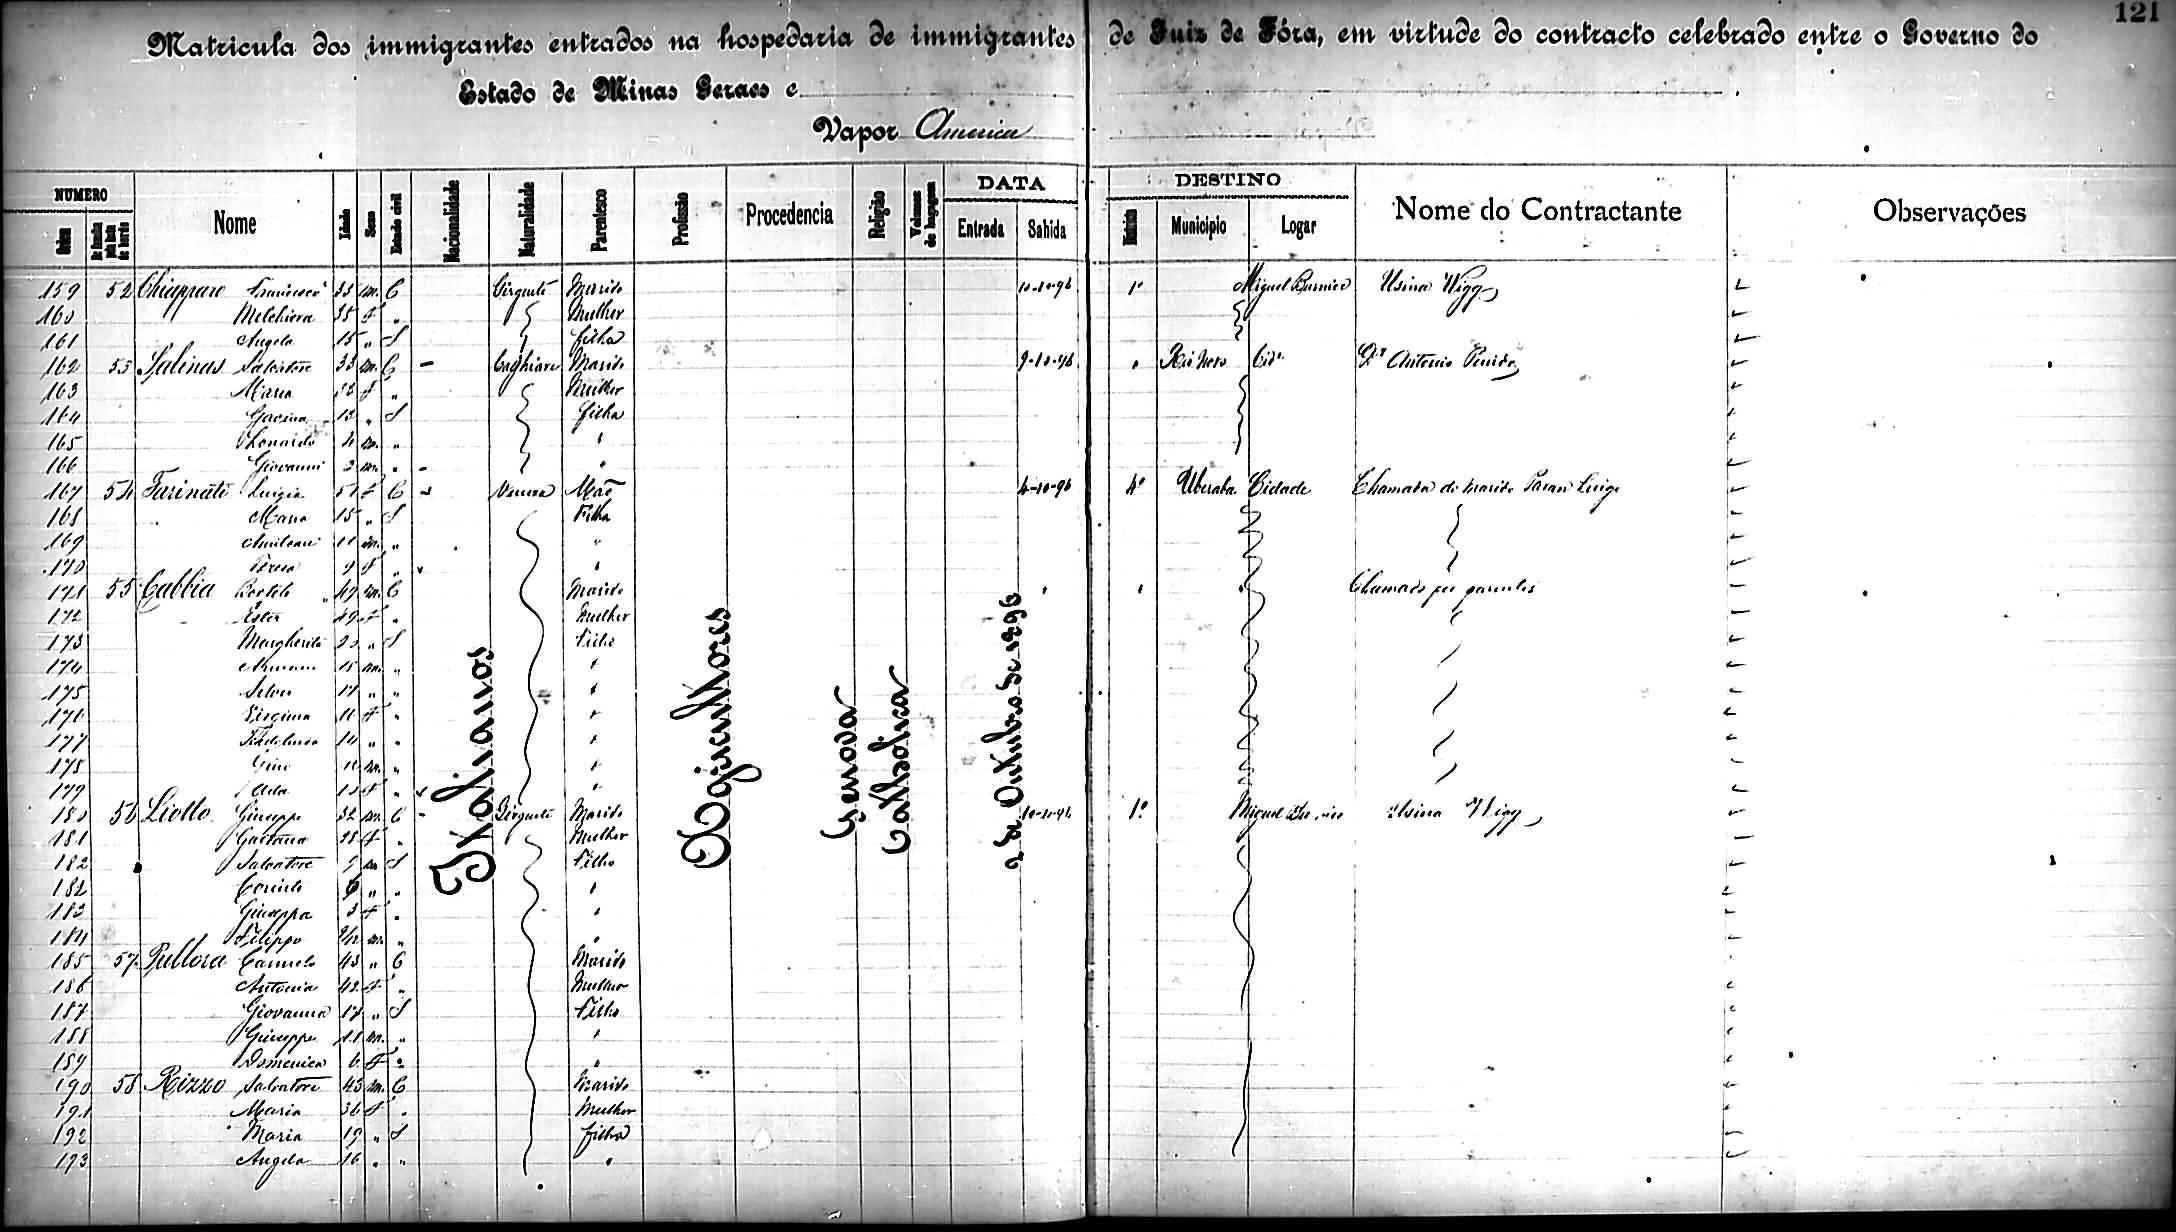 121
Matricula dos immigrantes entrados na hospedaria de immigrantes de Juiz de Fóra, em virtude do contracto celebrado entre o Governo do
Estado de Minas Geraes e
Vapor America
NUMERO DATA DESTINO
Ordem Nome Idade Sexo Estado civil Nacionalidade Naturalidade Parentesco Profissão Procedencia Religião Volumes de bagagem Entrada Sahida Municipio Logar Nome do Contractante Observações
159 52 Chiappare Francisco 33 m. C Girgenti Marido 10-10-96 1º Miguel Burnier Usina Wigg
160 Melchiora 35 f " Mulher
161 Angela 15 " S filha
162 53 Salinas Salvatore 33 m. C Marido 9-10-96 " Rio Novo Cid. Dr Antonio Penido
163 Maria f " Mulher
164 " S filha
165 Leonardo m. "
166 Giovanni 3 m. "
167 54 Farinati Luigia 51 f C Verona Mãe 4-10-96 4º Uberaba Cidade Chamada do marido Luigi
168 Maria 15 " S Filha
169 11 m. " "
170 9 f "
171 55 Cabbia 49 m. C Marido " " Chamado por parentes
172 Ester 49 f " Mulher
173 Margherita " S Filho
174 15 m. " "
175 Silvio 17 " " "
176 Virginia 11 f " "
177 14 " " "
178 Gino m. " "
179 Ada f "
180 56 Liotto Giuseppe 32 m. C Girgenti Marido 10-10-96 1º Miguel Burnier Usina Wigg
181 Gaetana 28 f " Mulher
182 Salvatore 9 m S Filho
182 " " "
183 Giuseppa 3 f " "
184 Filippo m. " "
185 57 Carmelo 43 " C Marido
186 Antonia 42 f " Mulher
187 Giovanna 17 " S Filho
188 Giuseppe 11 m. " "
189 Domenica 6 f " "
190 58 Rizzo Salvatore 43 m. C Marido
191 Maria 36 f " Mulher
192 Maria 19 " S filha
193 Angela 16 " " "
Italianos
Agricultores
Genova
Catholica
2 de Outubro de 1896